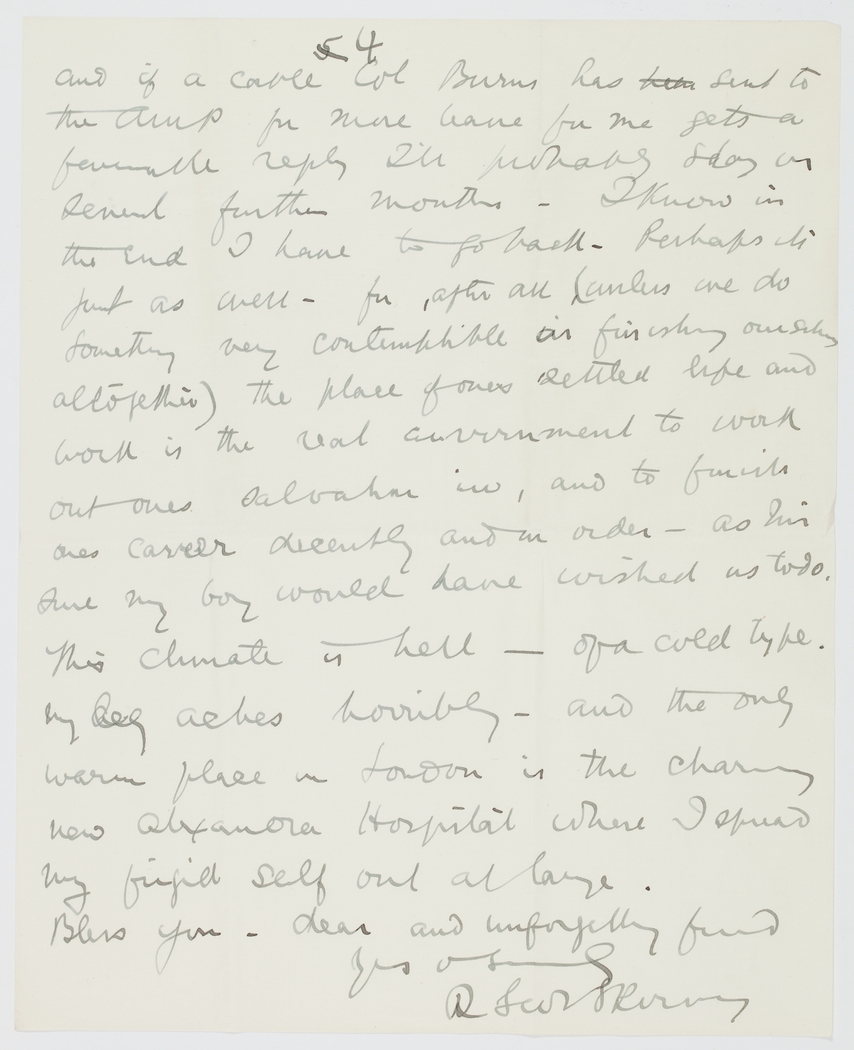 4
and if a cable Col Burns has sent to
the AMP for more leave for me gets a
favourable reply I'll probably stay on
several further months - I know in
the end I have to go back - Perhaps its
just as well - for, after all (unless we do
something very contemptible in finishing ourselves
altogether) the place of ones settled life and
work is the real environment to work
out ones salvation in, and to finish
ones career decently and in order - as I'm
sure my boy would have wished us to do.
This climate is hell — of a cold type.
my leg aches horribly - and the only
warm place in London is the charming
new Alexandra Hospital where I spread
my frigid self out at large.
Bless you - dear and unforgetting friend
Yrs
R Scot Skirving